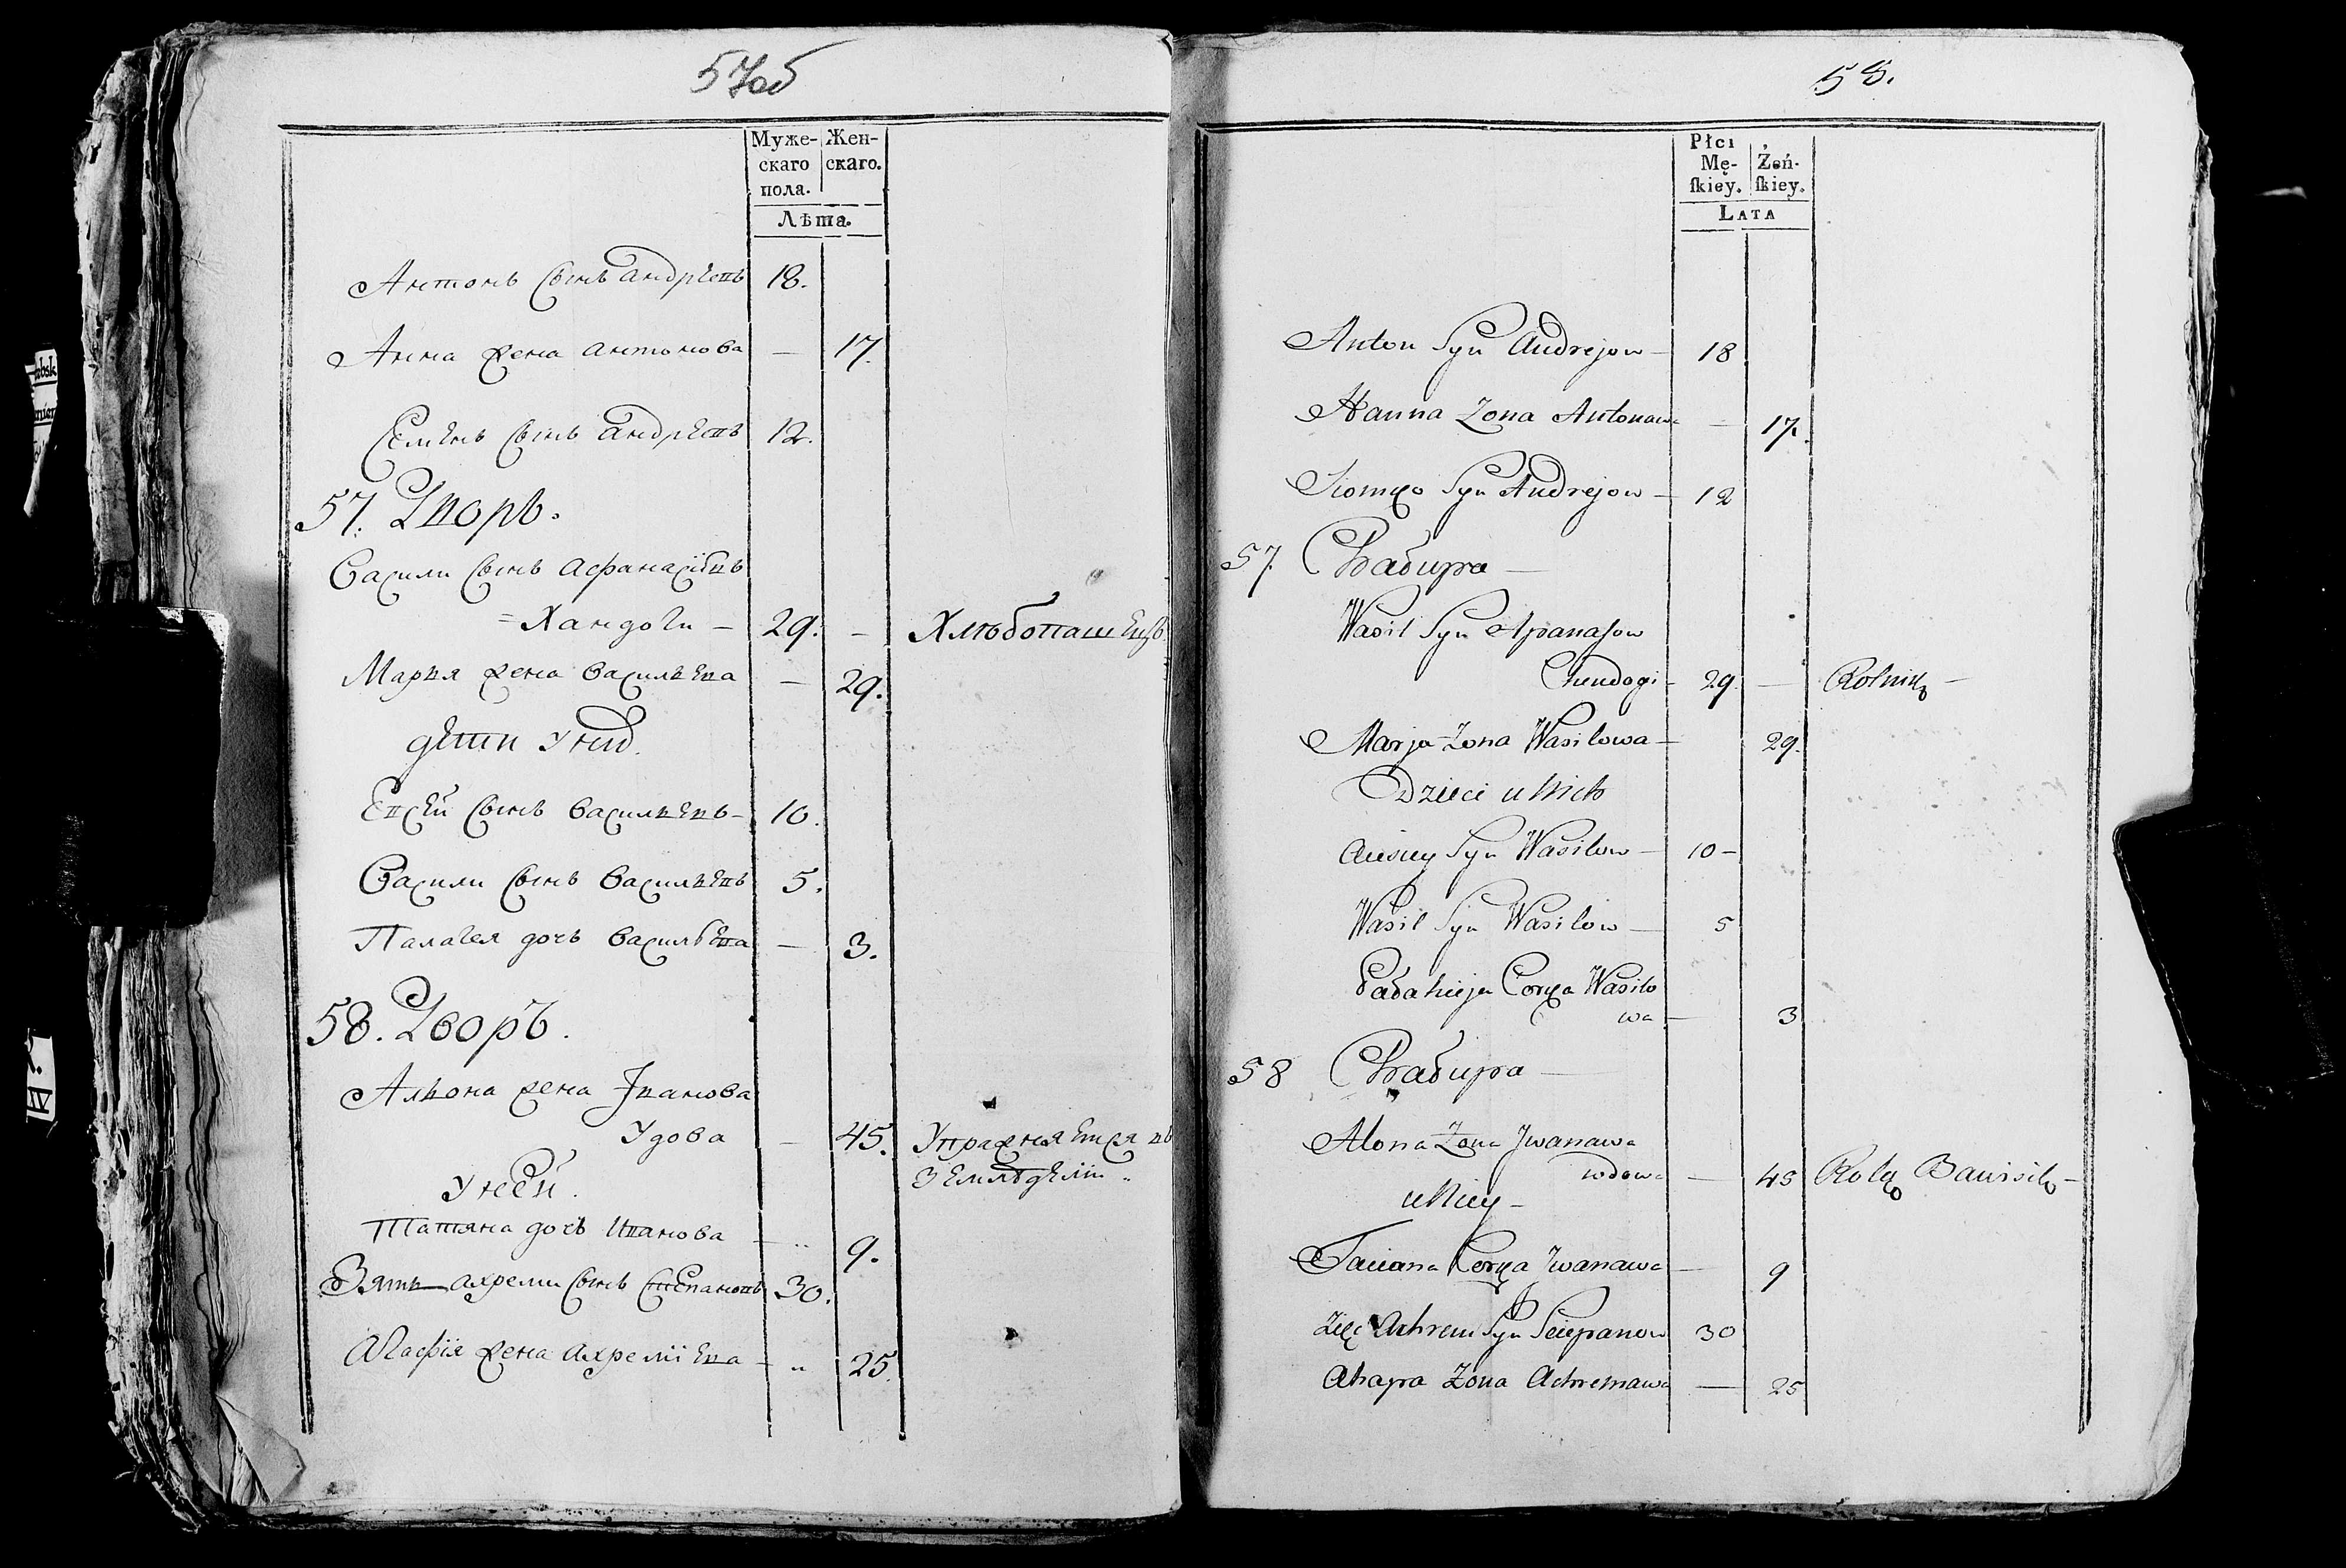 57об
Муже-
скаго
пола.
Жен-
скаго.
Лѣта.
Антонъ сынъ андрѣевъ 18.
Анна жена антонова — 17.
Семенъ сынъ андрѣевъ 12.
57. Дворъ.
Василии сынъ афанасіевъ
= Хандоги — 29. — Хлѣбопашецъ
Марья жена васильева — 29.
дети у них
Евсѣй сынъ васильевъ — 10.
Василии сынъ васильевъ 5.
Палагея дочь васильева — 3.
58. Дворъ.
Альона жена Іванова
Удова — 45. Упражняется въ
землѣделіи
У неей.
Татяна дочь иванова — „ 9.
Зять ахреми сынъ степановъ 30.
Агафія жена ахреміева — „ 25.
58.
Płci
Mę-
skiey.
Żeń-
skiey.
LATA
Anton Syn Andrejow — 18
Hanna Zona Antonawa — 17.
Siomko Syn Andrejow — 12
57. Chałupa —
Wasil Syn Apanasow
Chendogi — 29. — Rolnik —
Marja Zona Wasilowa — 29.
Dzieci u Nich
Ausiey Syn Wasilow — 10 —
Wasil Syn Wasilow — 5
Pałahieja Corka Wasilo
wa — 3
58 Chałupa —
Alona Zona Jwanawa
wdowa — 45 Rolą Bawi sie —
u Niey —
Taciana Corka Jwanawa — 9
Zięc Achrem Syn Sciepanow 30
Ahapa Zona Achremawa — 25